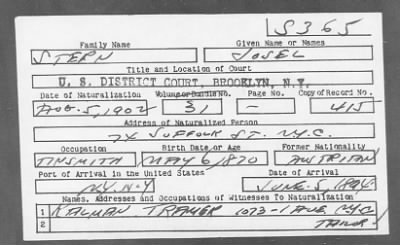 S365
Family Name Given Name or Names
STERN JOSEL
Title and Location of Court
U. S. DISTRICT COURT, BROOKLYN, N.Y.
Date of Naturalization Volume or Bundle No. Page No. Copy of Record No.
AUG. 5, 1902 31 — 415
Address of Naturalized Person
74 SUFFOLK ST. N.Y.C.
Occupation Birth Date or Age Former Nationality
TINSMITH MAY 6, 1870 AUSTRIAN
Port of Arrival in the United States Date of Arrival
N.Y. N.Y JUNE-5, 1894
Names, Addresses and Occupations of Witnesses To Naturalization
1 KALMAN 1073-1 AVE. N.Y.C.
2 TAILOR